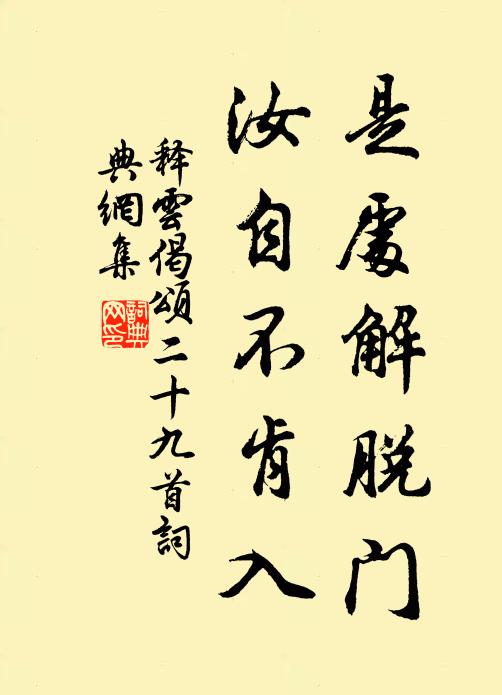 是處解脱门
汝自不肯入
释雲偈頌二十九首詞
典網集
詞典
网印